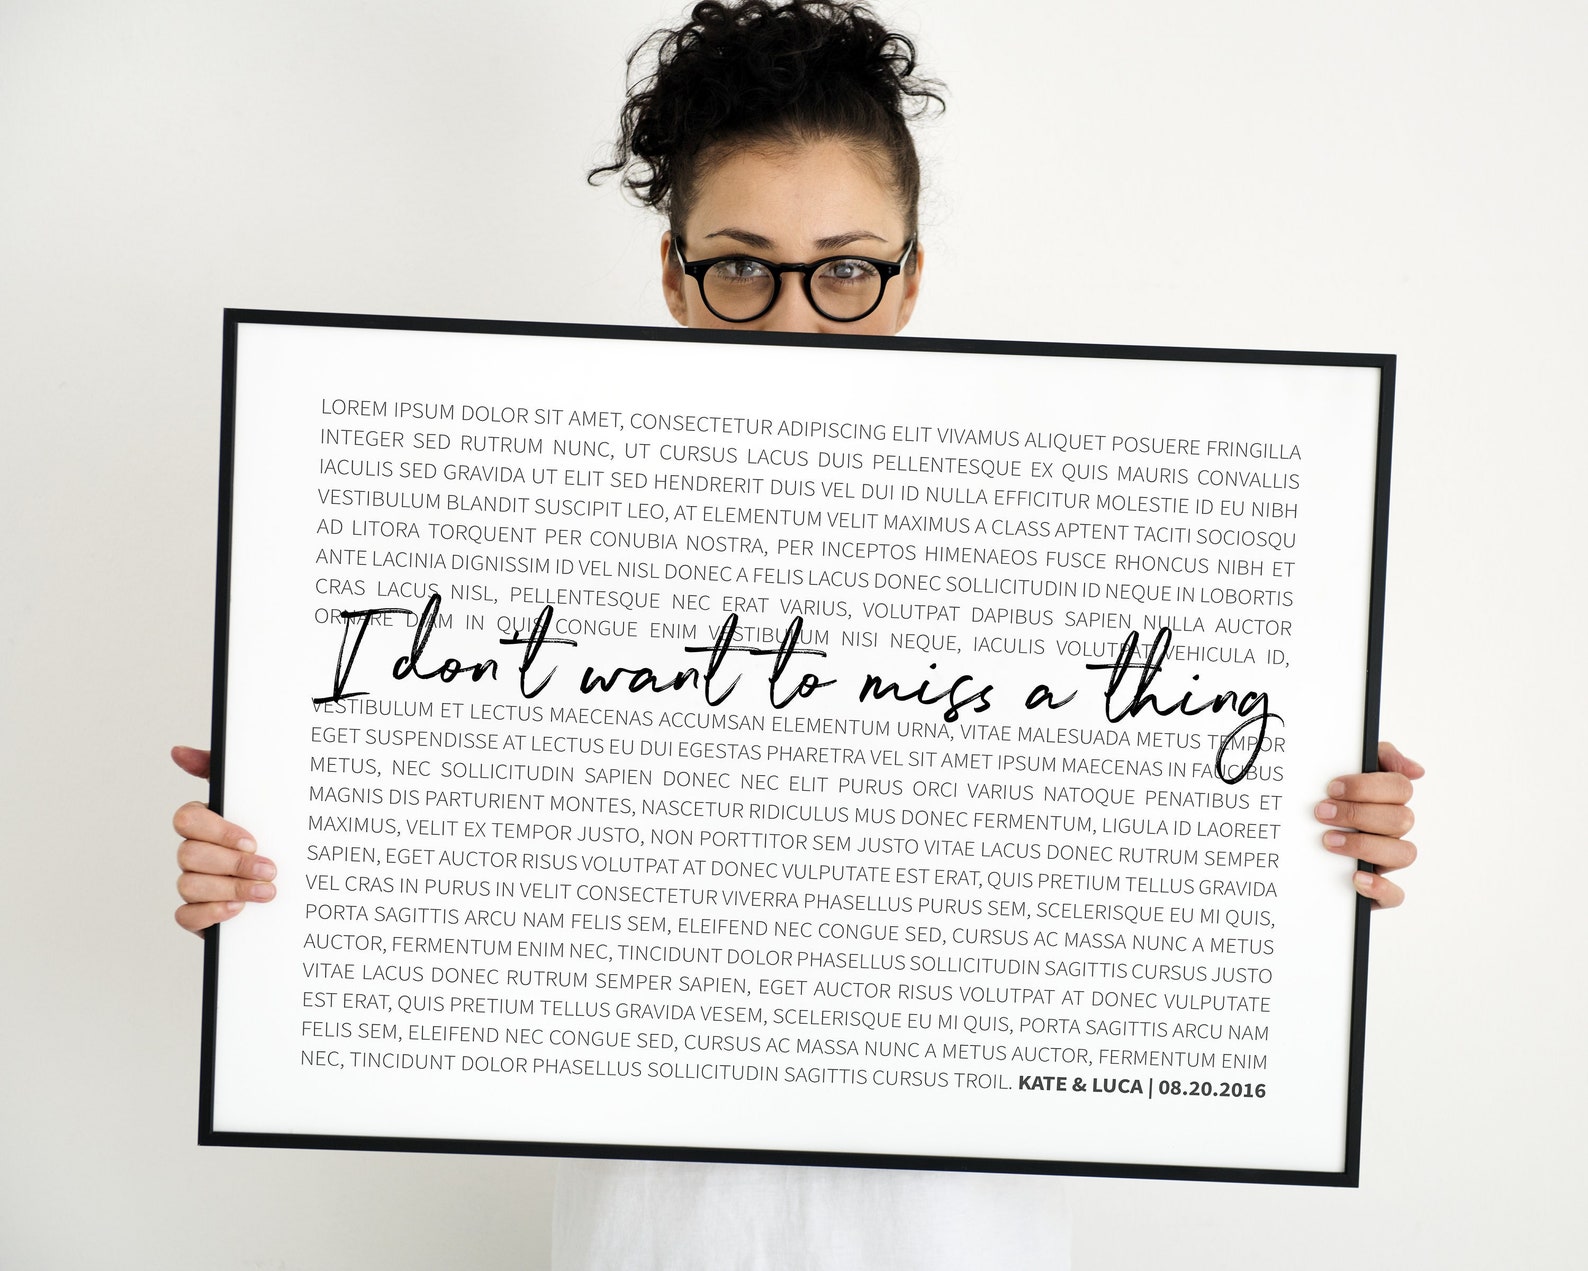 LOREM IPSUM DOLOR SIT AMET, CONSECTETUR ADIPISCING ELIT VIVAMUS ALIQUET POSUERE FRINGILLA
INTEGER SED RUTRUM NUNC, UT CURSUS LACUS DUIS PELLENTESQUE EX QUIS MAURIS CONVALLIS
IACULIS SED GRAVIDA UT ELIT SED HENDRERIT DUIS VEL DUI ID NULLA EFFICITUR MOLESTIE ID EU NIBH
VESTIBULUM BLANDIT SUSCIPIT LEO, AT ELEMENTUM VELIT MAXIMUS A CLASS APTENT TACITI SOCIOSQU
AD LITORA TORQUENT PER CONUBIA NOSTRA, PER INCEPTOS HIMENAEOS FUSCE RHONCUS NIBH ET
ANTE LACINIA DIGNISSIM ID VEL NISL DONEC A FELIS LACUS DONEC SOLLICITUDIN ID NEQUE IN LOBORTIS
CRAS LACUS NISL, PELLENTESQUE NEC ERAT VARIUS, VOLUTPAT DAPIBUS SAPIEN NULLA AUCTOR
ORNARE DIAM IN QUIS CONGUE ENIM VESTIBULUM NISI NEQUE, IACULIS VOLUTPAT VEHICULA ID,
I don't want to miss a thing
VESTIBULUM ET LECTUS MAECENAS ACCUMSAN ELEMENTUM URNA, VITAE MALESUADA METUS TEMPOR
EGET SUSPENDISSE AT LECTUS EU DUI EGESTAS PHARETRA VEL SIT AMET IPSUM MAECENAS IN FAUCIBUS
METUS, NEC SOLLICITUDIN SAPIEN DONEC NEC ELIT PURUS ORCI VARIUS NATOQUE PENATIBUS ET
MAGNIS DIS PARTURIENT MONTES, NASCETUR RIDICULUS MUS DONEC FERMENTUM, LIGULA ID LAOREET
MAXIMUS, VELIT EX TEMPOR JUSTO, NON PORTTITOR SEM JUSTO VITAE LACUS DONEC RUTRUM SEMPER
SAPIEN, EGET AUCTOR RISUS VOLUTPAT AT DONEC VULPUTATE EST ERAT, QUIS PRETIUM TELLUS GRAVIDA
VEL CRAS IN PURUS IN VELIT CONSECTETUR VIVERRA PHASELLUS PURUS SEM, SCELERISQUE EU MI QUIS,
PORTA SAGITTIS ARCU NAM FELIS SEM, ELEIFEND NEC CONGUE SED, CURSUS AC MASSA NUNC A METUS
AUCTOR, FERMENTUM ENIM NEC, TINCIDUNT DOLOR PHASELLUS SOLLICITUDIN SAGITTIS CURSUS JUSTO
VITAE LACUS DONEC RUTRUM SEMPER SAPIEN, EGET AUCTOR RISUS VOLUTPAT AT DONEC VULPUTATE
EST ERAT, QUIS PRETIUM TELLUS GRAVIDA VESEM, SCELERISQUE EU MI QUIS, PORTA SAGITTIS ARCU NAM
FELIS SEM, ELEIFEND NEC CONGUE SED, CURSUS AC MASSA NUNC A METUS AUCTOR, FERMENTUM ENIM
NEC, TINCIDUNT DOLOR PHASELLUS SOLLICITUDIN SAGITTIS CURSUS TROIL. KATE & LUCA | 08.20.2016